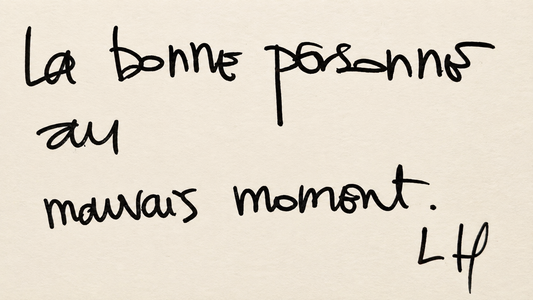 La bonne personne
au
mauvais moment.
LH